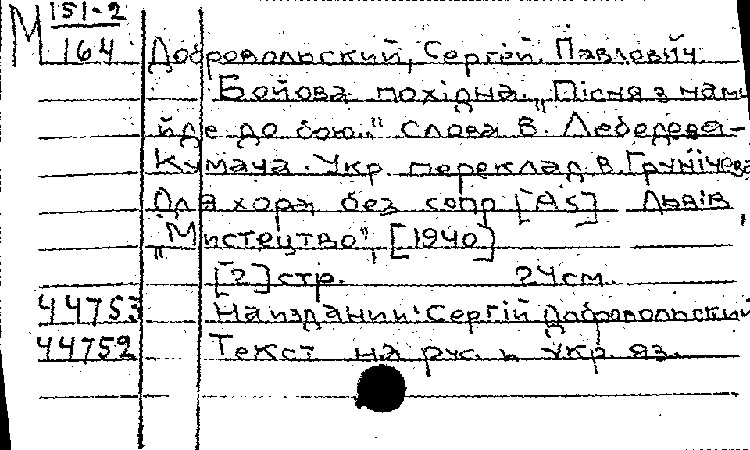 М 151-2
164 Добровольский, Сергей Павлович
Бойова похідна. „Пісня з нами
йде до бою..." Слова В. Лебедева-
Кумача. Укр. переклад В. Грунічева
Для хора без сопр [As] Львів,
„Мистецтво", [1940]
[2] стр. 24 см.
44753 На издании: Сергій Добровольский
44752 Текст на рус. и укр. яз.